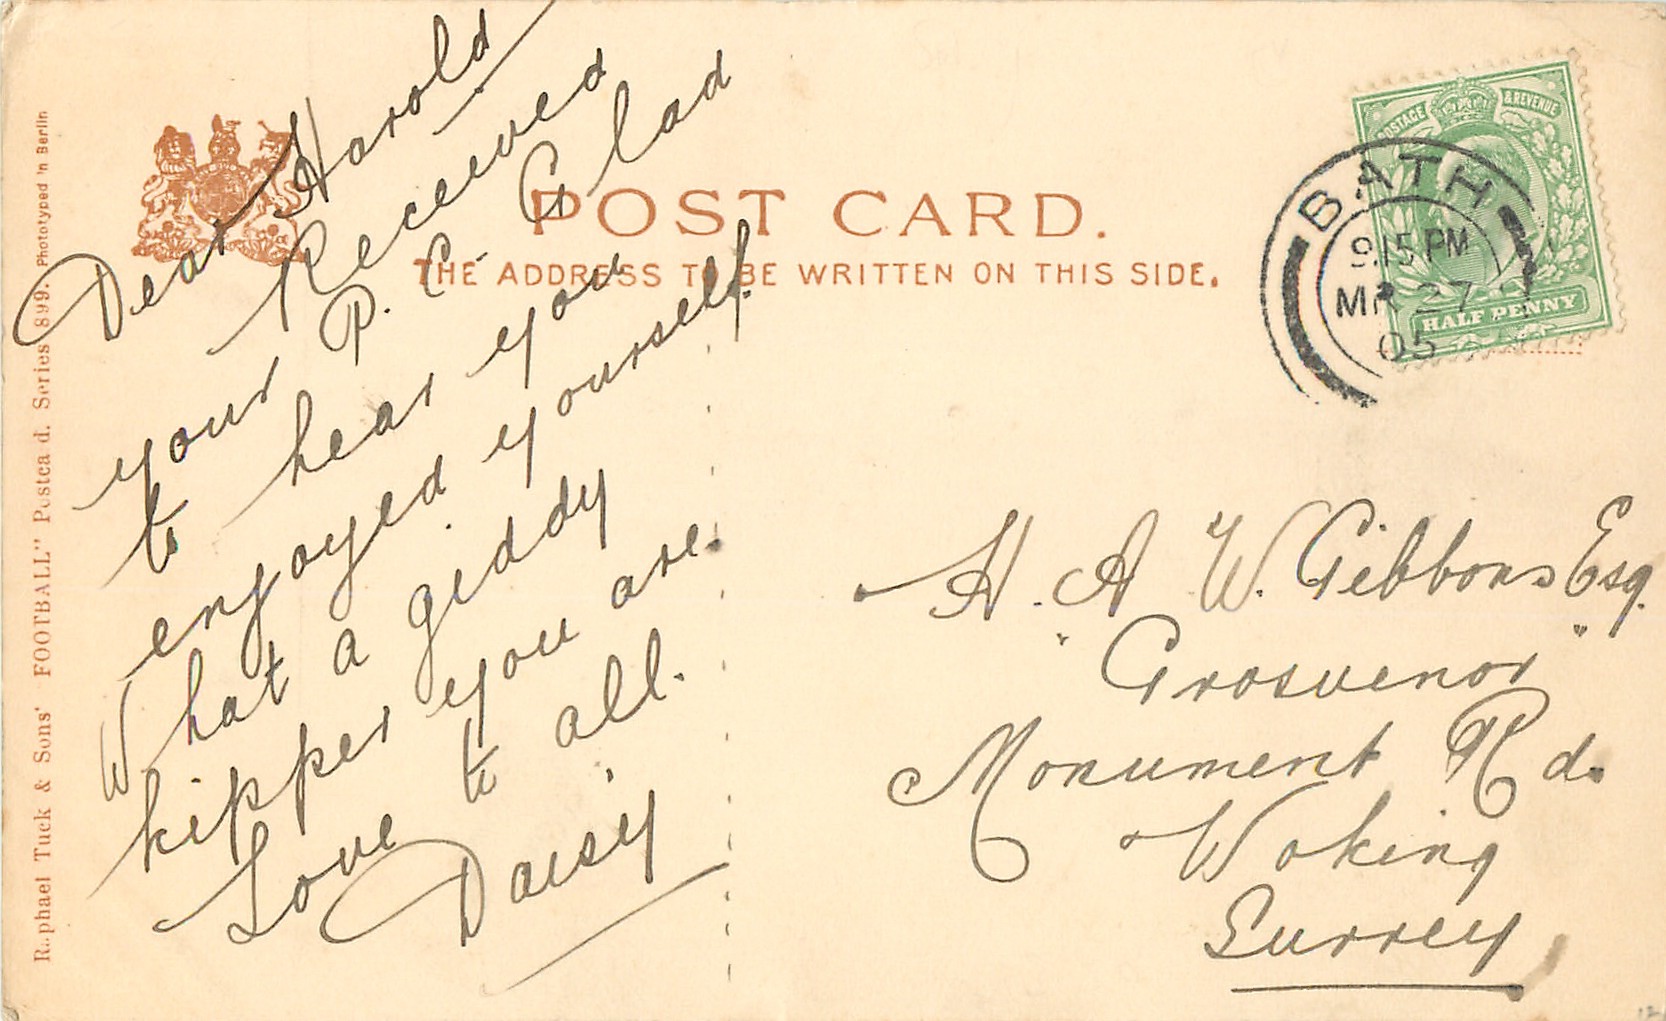 Raphael Tuck & Sons' "FOOTBALL" Postcard. Series 899. Phototyped in Berlin
POST CARD.
THE ADDRESS TO BE WRITTEN ON THIS SIDE.
POSTAGE & REVENUE
HALF PENNY
BATH
9.15 PM
MR 27
05
Dear Harold
Received
your P. C. Glad
to hear you
enjoyed yourself.
What a giddy
kipper you are.
Love to all.
Daisy
H. A. W. Gibbons Esq.
"Grosvenor"
Monument Rd.
Woking
Surrey